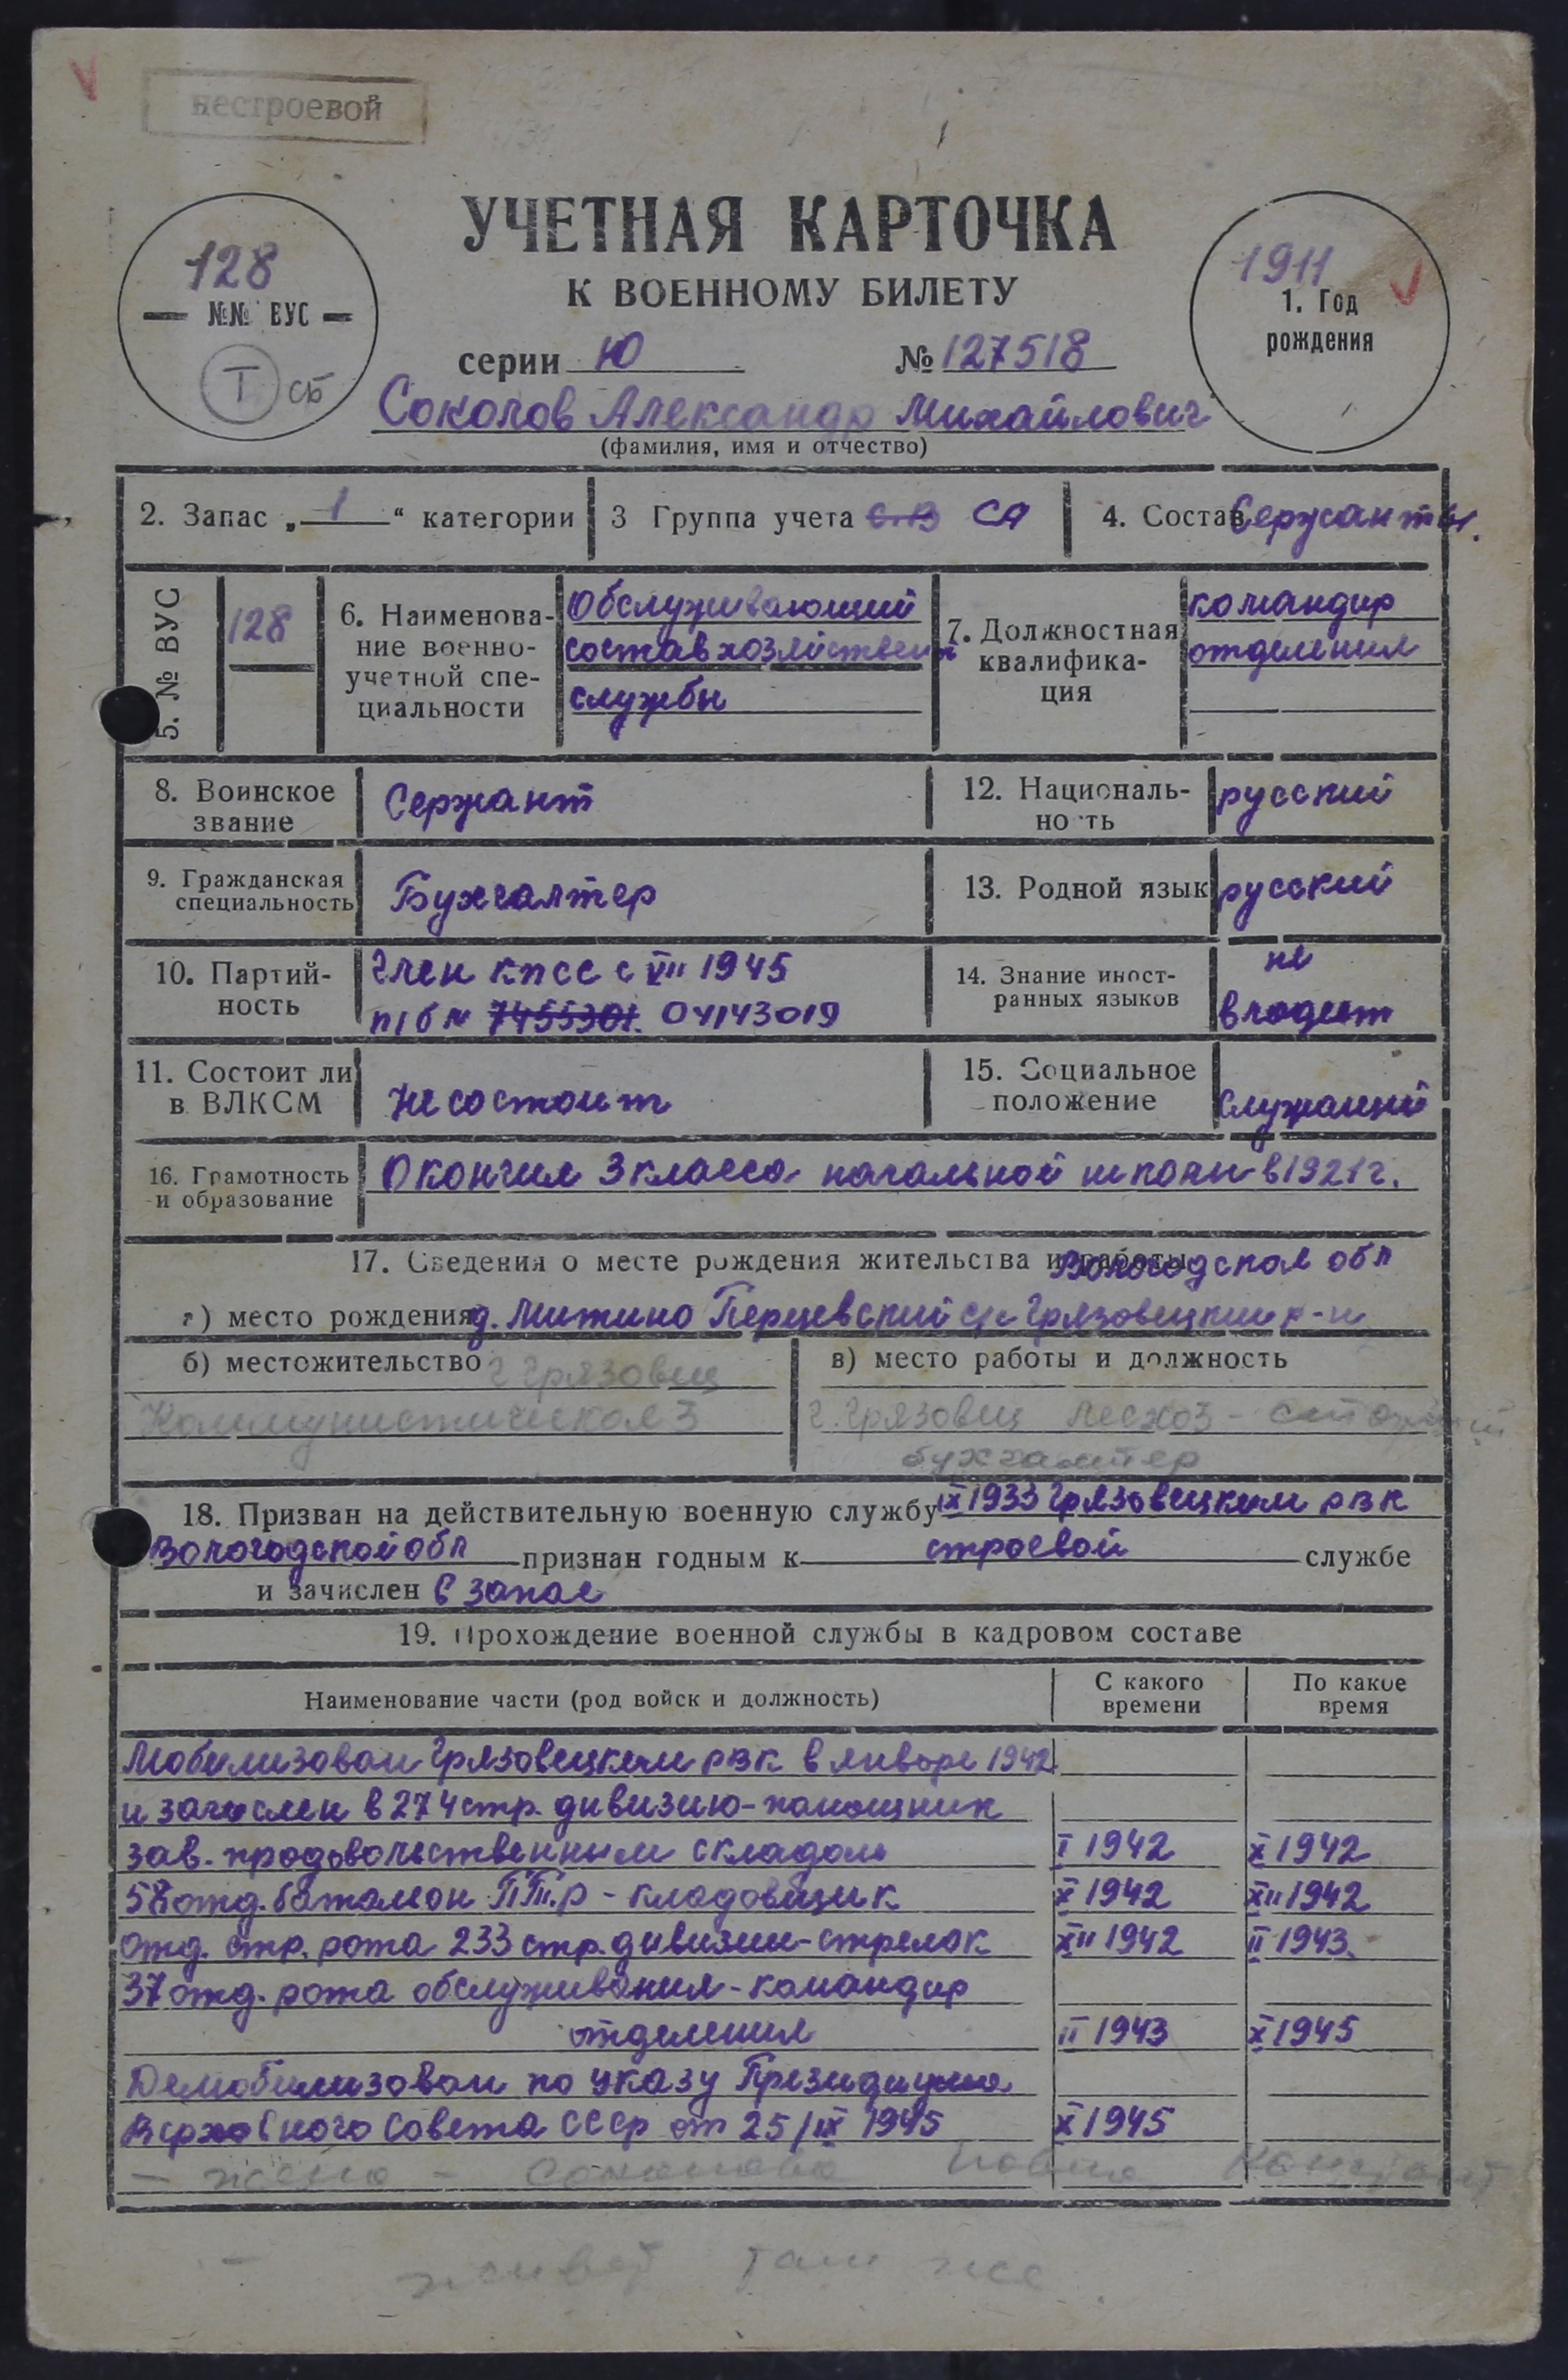 нестроевой
УЧЕТНАЯ КАРТОЧКА
К ВОЕННОМУ БИЛЕТУ
128
№№ ВУС
Т сб
1911
1. Год
рождения
серии Ю № 127518
Соколов Александр Михайлович
(фамилия, имя и отчество)
2. Запас „1“ категории 3 Группа учета СА 4. Состав Сержанты.
5. № ВУС 128
6. Наименова-
ние военно-
учетной спе-
циальности
Обслуживающий
состав хозяйствен
службы
7. Должностная
квалифика-
ция
командир
отделения
8. Воинское
звание
Сержант
12. Националь-
но ть
русский
9. Гражданская
специальность
Бухгалтер
13. Родной язык русский
10. Партий-
ность
Член КПСС с VII 1945
п/б № 7455301. 04143019
14. Знание иност-
ранных языков
не
владеет
11. Состоит ли
в ВЛКСМ
Не состоит
15. Социальное
положение
Служащий
16. Грамотность
и образование
Окончил 3 класса начальной школы в 1921 г.
17. Сведения о месте рождения жительства и работы
Вологодская обл
а) место рождения д. Митино Перцевский с/с Грязовецкий р-н
б) местожительство г Грязовец
Коммунистическая 3
в) место работы и должность
г. Грязовец Лесхоз - старший
бухгалтер
18. Призван на действительную военную службу IX 1933 Грязовецким РВК
Вологодской обл признан годным к строевой службе
и зачислен в запас
19. Прохождение военной службы в кадровом составе
Наименование части (род войск и должность)
С какого
времени
По какое
время
Мобилизован Грязовецким РВК в январе 1942
и зачислен в 274 стр. дивизию - помощник
зав. продовольственным складом I 1942 X 1942
58 отд. батальон ПТ.р - кладовщик X 1942 XII 1942
отд. стр. рота 233 стр. дивизии - стрелок XII 1942 II 1943
37 отд. рота обслуживания - командир
отделения II 1943 X 1945
Демобилизован по указу Президиума
Верховного Совета СССР от 25/IX 1945 X 1945
- жена - Соколова
живет там же